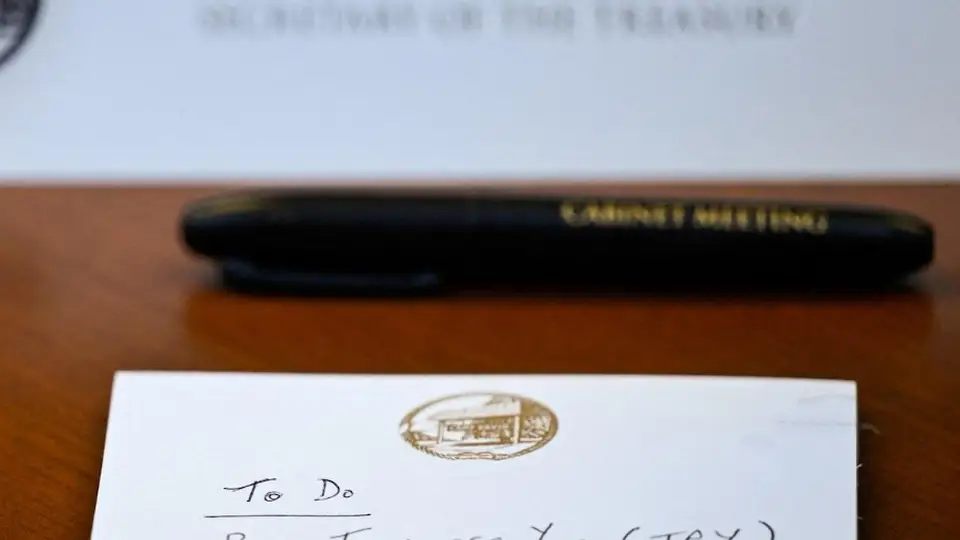 SECRETARY OF THE TREASURY
CABINET MEETING
To Do
(JPY)